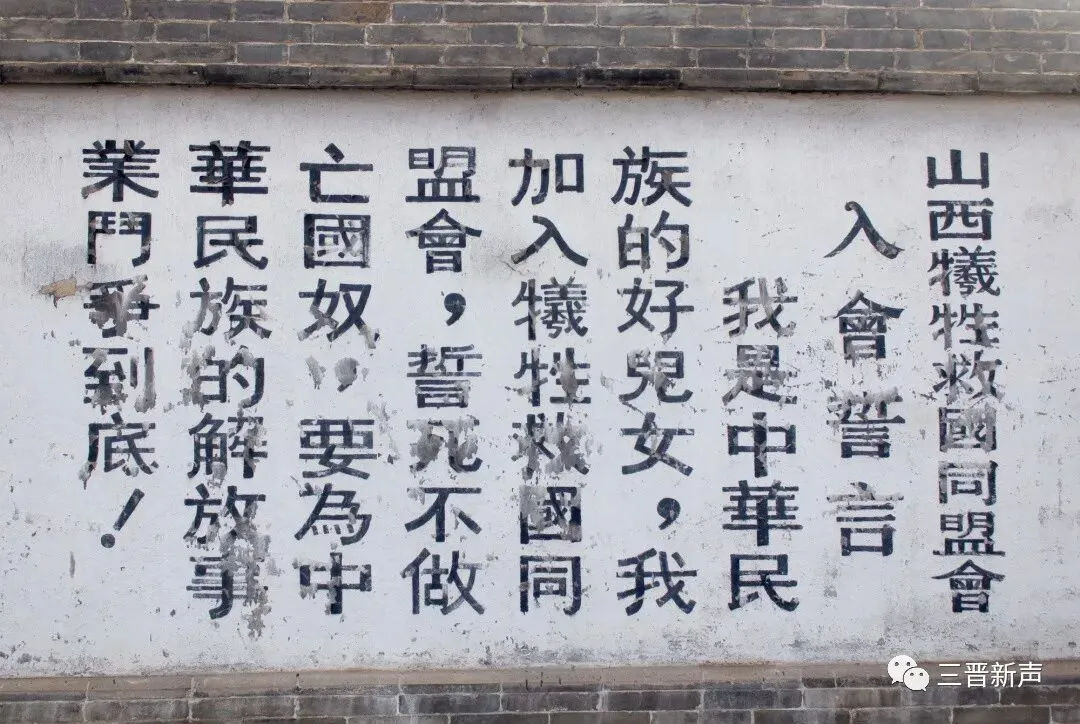 山西犧牲救國同盟會
入會誓言
我是中華民
族的好兒女，我
加入犧牲救國同
盟會，誓死不做
亡國奴，要為中
華民族的解放事
業鬥爭到底！
三晋新声